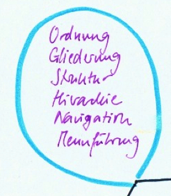 Ordnung
Gliederung
Struktur
Hirachie
Navigation
Menuführung